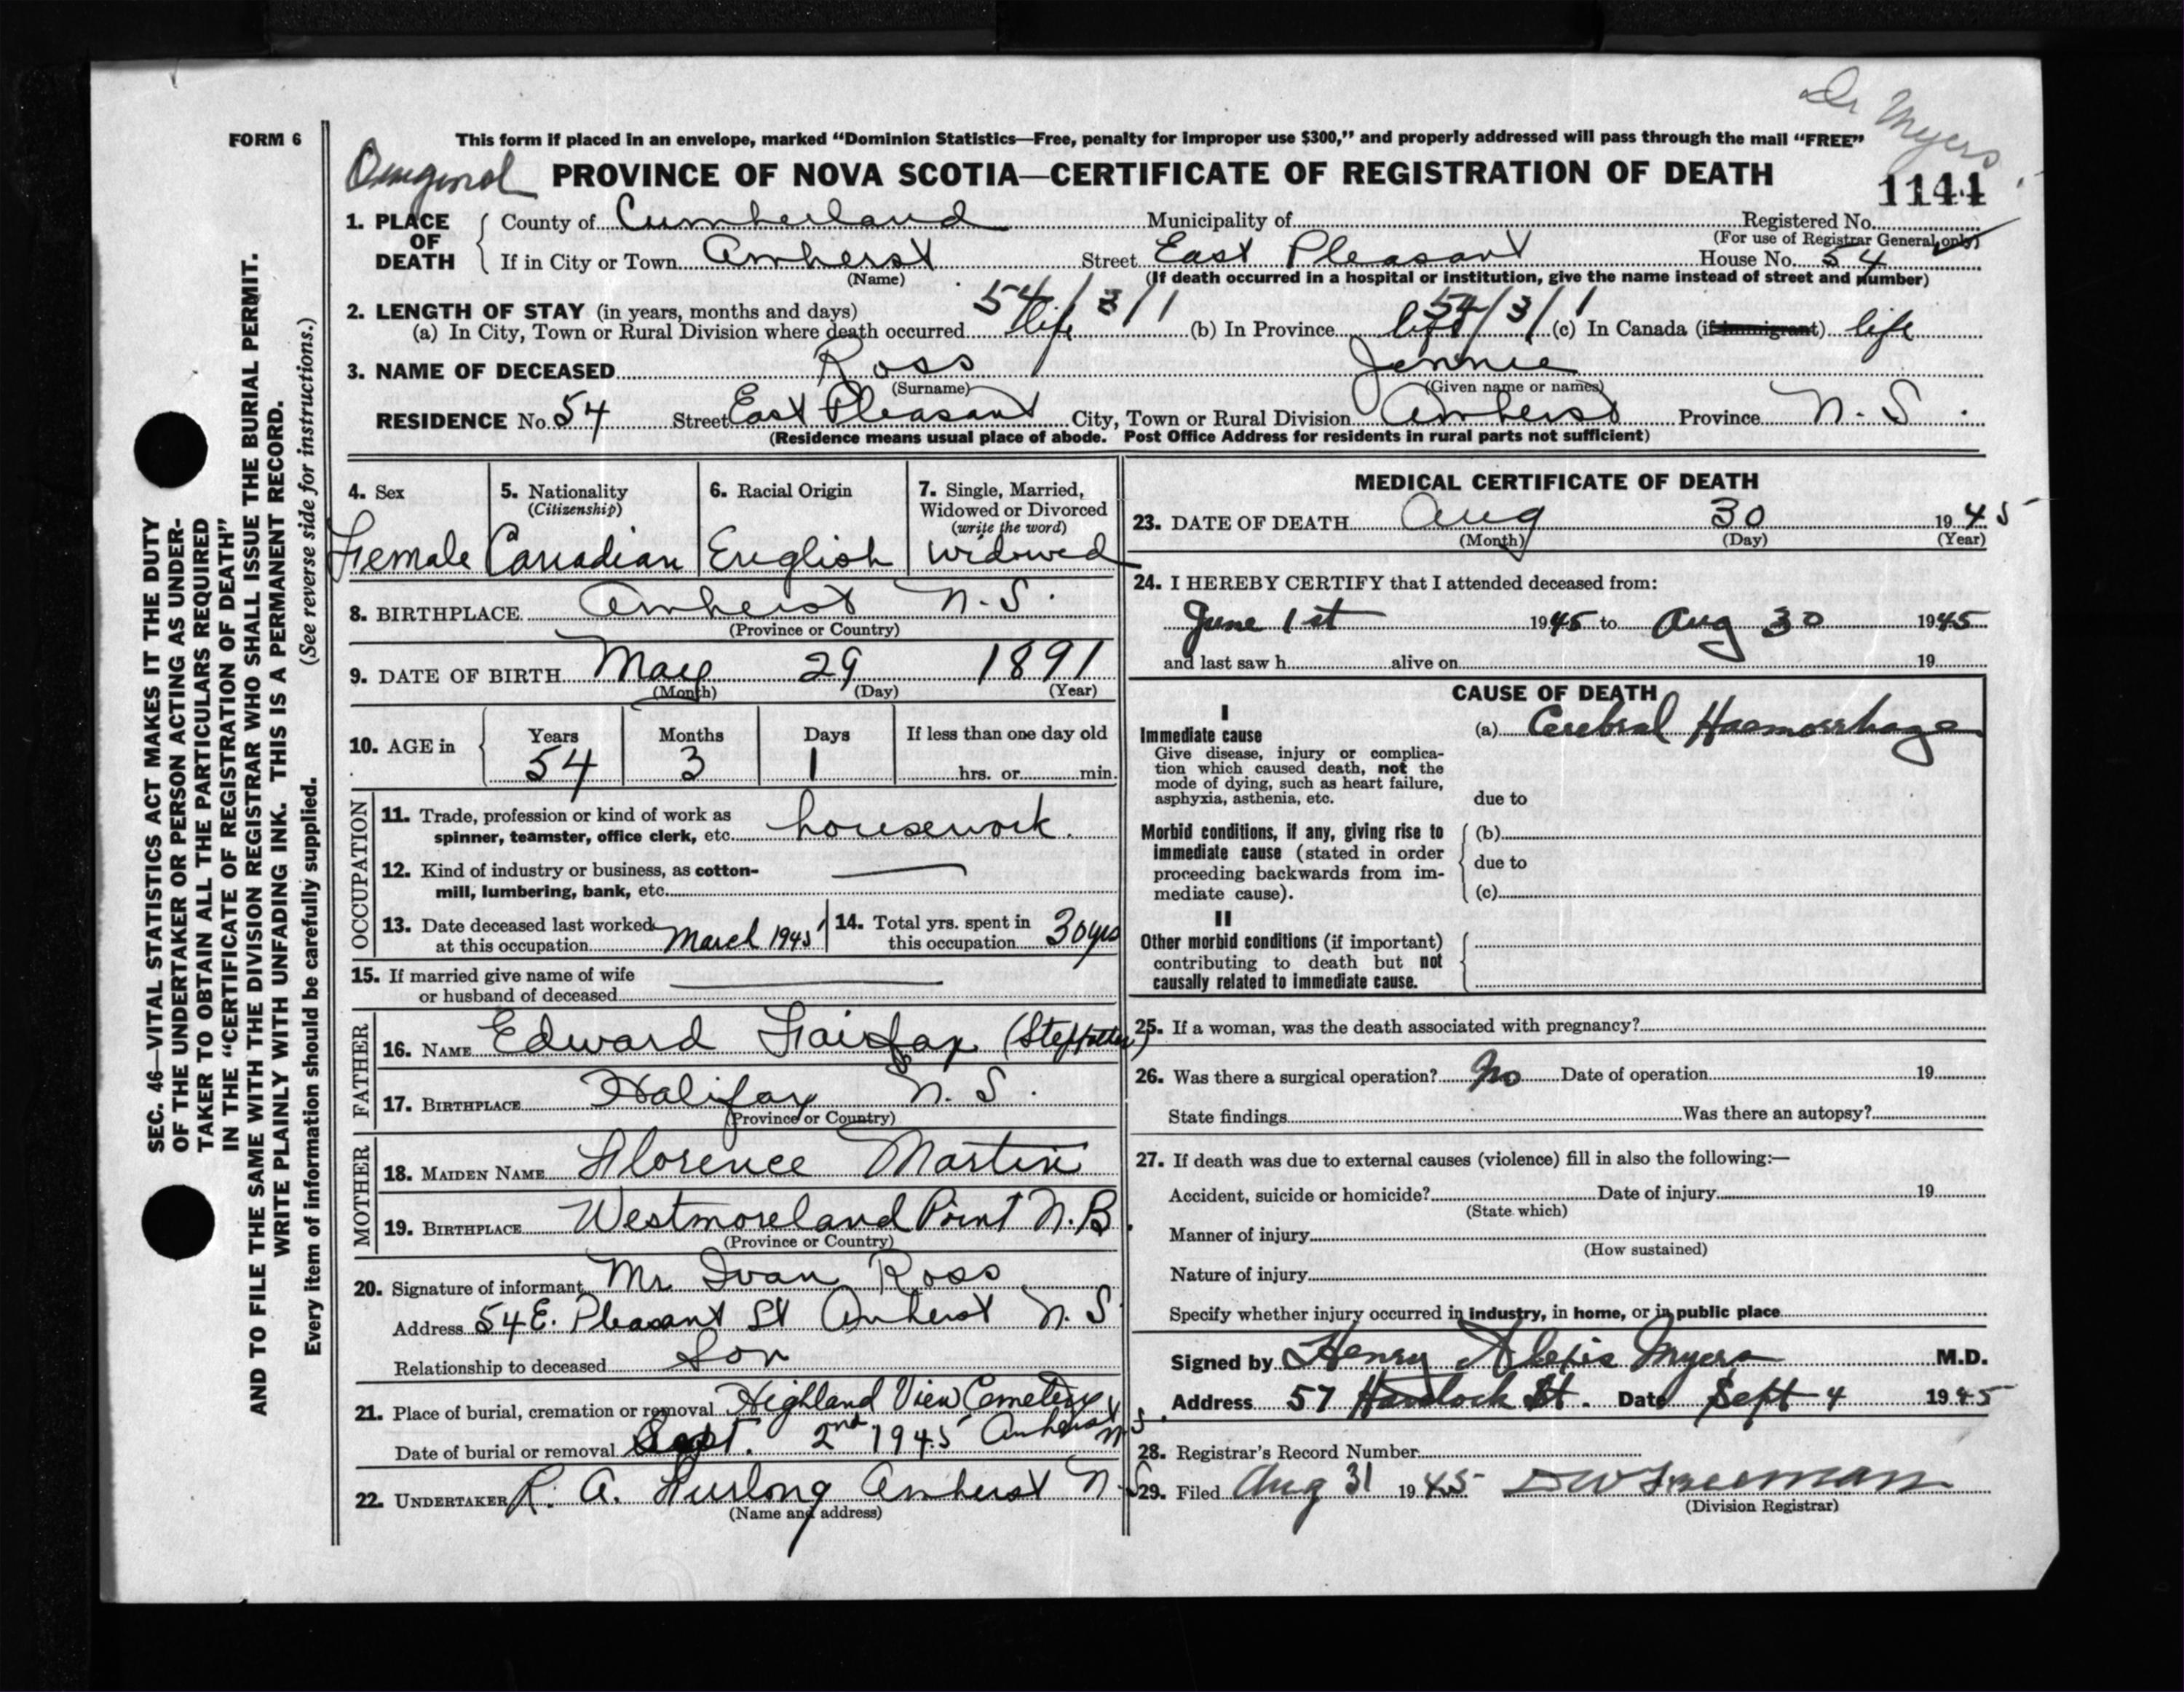 Dr Myers
FORM 6
This form if placed in an envelope, marked “Dominion Statistics—Free, penalty for improper use $300,” and properly addressed will pass through the mail “FREE”
PROVINCE OF NOVA SCOTIA—CERTIFICATE OF REGISTRATION OF DEATH
1144
1. PLACE OF DEATH { County of Cumberland Municipality of Registered No.
(For use of Registrar General only)
If in City or Town Amherst Street East Pleasant House No. 54
(Name) (If death occurred in a hospital or institution, give the name instead of street and number)
2. LENGTH OF STAY (in years, months and days) 54/3/1 54/3/1
(a) In City, Town or Rural Division where death occurred life (b) In Province life (c) In Canada (if immigrant) life
3. NAME OF DECEASED Ross Jennie
(Surname) (Given name or names)
RESIDENCE No. 54 Street East Pleasant City, Town or Rural Division Amherst Province N.S.
(Residence means usual place of abode. Post Office Address for residents in rural parts not sufficient)
4. Sex
Female
5. Nationality
(Citizenship)
Canadian
6. Racial Origin
English
7. Single, Married,
Widowed or Divorced
(write the word)
Widowed
8. BIRTHPLACE Amherst N.S.
(Province or Country)
9. DATE OF BIRTH May 29 1891
(Month) (Day) (Year)
10. AGE in { Years Months Days If less than one day old
54 3 1 hrs. or min.
OCCUPATION
11. Trade, profession or kind of work as
spinner, teamster, office clerk, etc. housework.
12. Kind of industry or business, as cotton-
mill, lumbering, bank, etc.
13. Date deceased last worked
at this occupation March 1945
14. Total yrs. spent in
this occupation 30 yrs
15. If married give name of wife
or husband of deceased
FATHER
16. NAME Edward Fairfax (Stepfather)
17. BIRTHPLACE Halifax N.S.
(Province or Country)
MOTHER
18. MAIDEN NAME Florence Martin
19. BIRTHPLACE Westmoreland Point N.B.
(Province or Country)
20. Signature of informant Mr Ivan Ross
Address 54 E. Pleasant St Amherst N.S
Relationship to deceased Son
21. Place of burial, cremation or removal Highland View Cemetery
Amherst N.S.
Date of burial or removal Sept. 2nd 1945
22. UNDERTAKER R. A. Furlong Amherst N.S
(Name and address)
MEDICAL CERTIFICATE OF DEATH
23. DATE OF DEATH Aug 30 1945
(Month) (Day) (Year)
24. I HEREBY CERTIFY that I attended deceased from:
June 1st 1945 to Aug 30 1945
and last saw h alive on 19
CAUSE OF DEATH
I
Immediate cause (a) Cerebral Haemorrhage
Give disease, injury or complica-
tion which caused death, not the
mode of dying, such as heart failure,
asphyxia, asthenia, etc. due to
Morbid conditions, if any, giving rise to (b)
immediate cause (stated in order
proceeding backwards from im- due to
mediate cause). (c)
II
Other morbid conditions (if important)
contributing to death but not
causally related to immediate cause.
25. If a woman, was the death associated with pregnancy?
26. Was there a surgical operation? No Date of operation 19
State findings Was there an autopsy?
27. If death was due to external causes (violence) fill in also the following:—
Accident, suicide or homicide? Date of injury 19
(State which)
Manner of injury
(How sustained)
Nature of injury
Specify whether injury occurred in industry, in home, or in public place
Signed by Henry Alexis Myers M.D.
Address 57 Havelock St. Date Sept 4 1945
28. Registrar's Record Number
29. Filed Aug 31 1945 D W Freeman
(Division Registrar)
SEC. 46—VITAL STATISTICS ACT MAKES IT THE DUTY
OF THE UNDERTAKER OR PERSON ACTING AS UNDER-
TAKER TO OBTAIN ALL THE PARTICULARS REQUIRED
IN THE “CERTIFICATE OF REGISTRATION OF DEATH”
AND TO FILE THE SAME WITH THE DIVISION REGISTRAR WHO SHALL ISSUE THE BURIAL PERMIT.
WRITE PLAINLY WITH UNFADING INK. THIS IS A PERMANENT RECORD.
Every item of information should be carefully supplied. (See reverse side for instructions.)